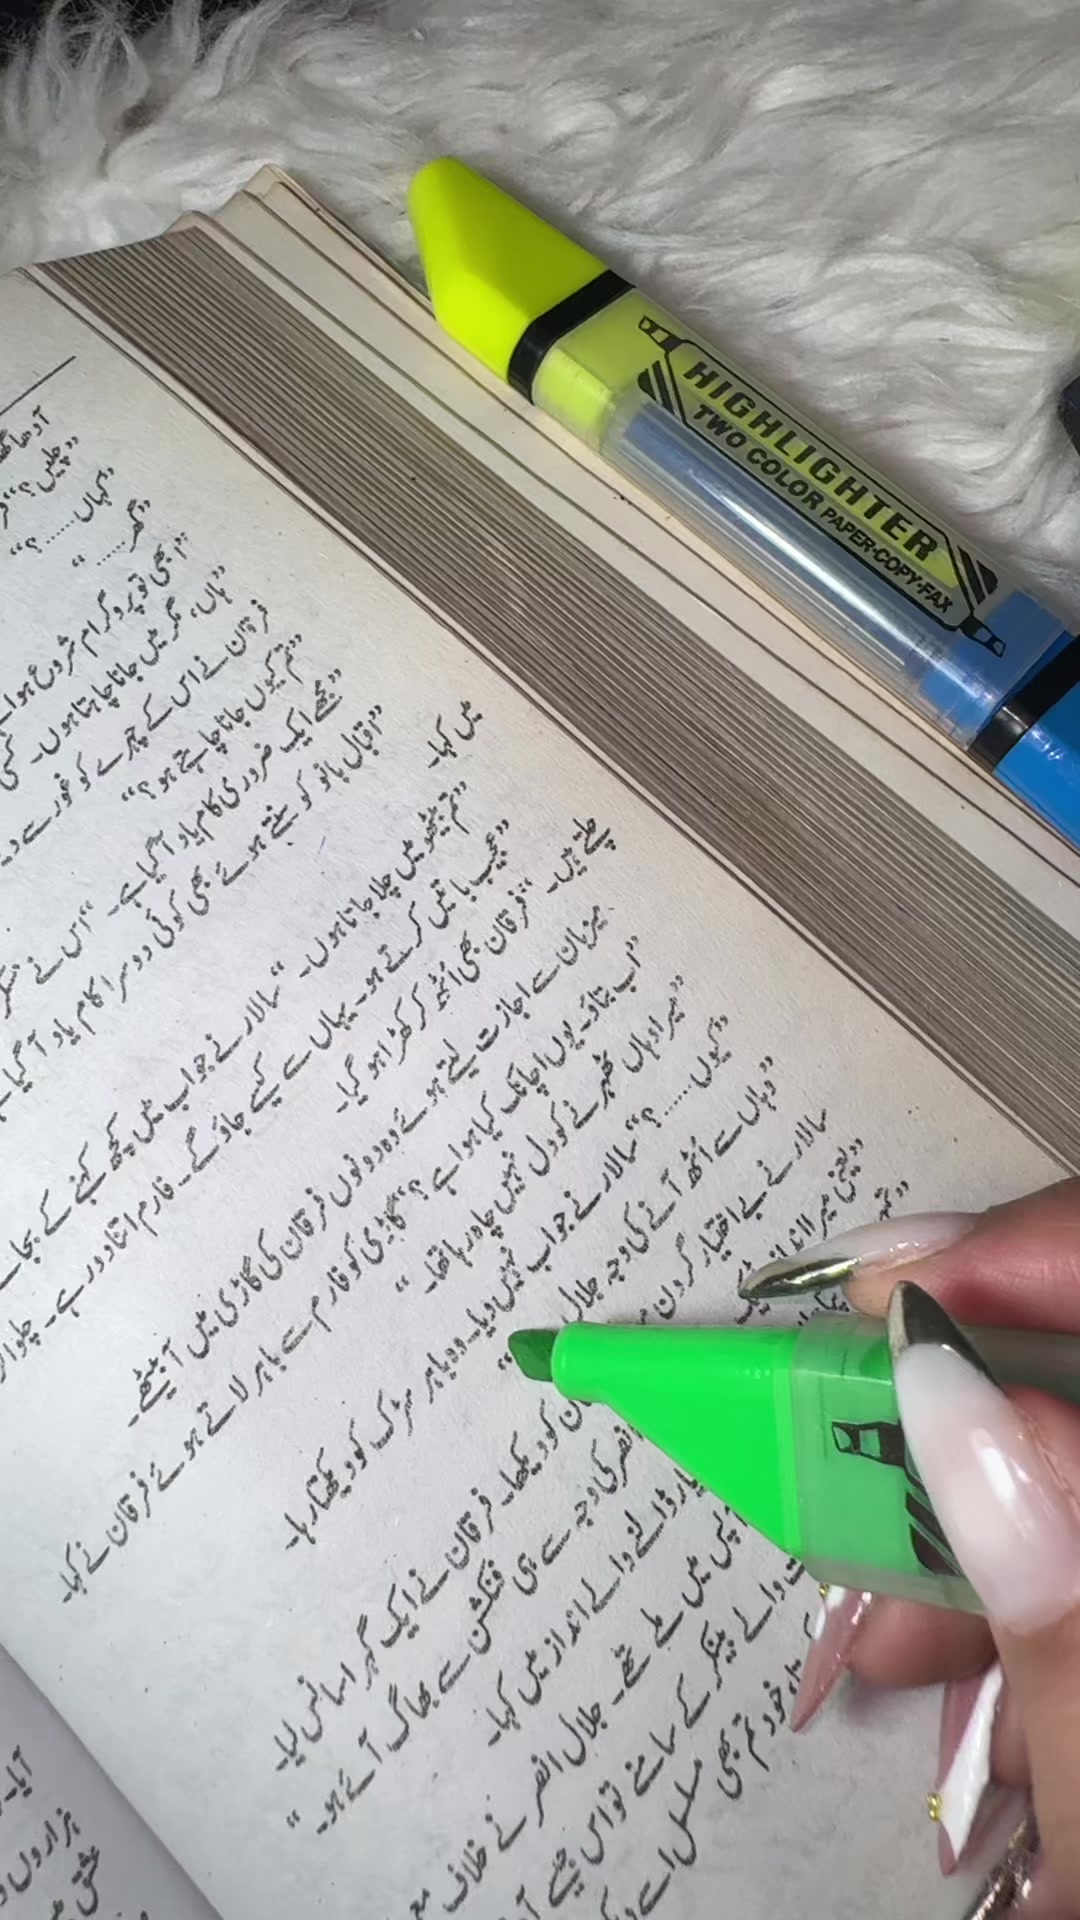 HIGHLIGHTER
TWO COLOR PAPER·COPY·FAX
"چلیں؟"
"کہاں......؟"
"گھر......"
"ابھی تو پروگرام شروع ہوا
"ہاں، مگر میں جانا چاہتا ہوں۔
فرقان نے اس کے چہرے کو غور سے
"تم کیوں جانا چاہتے ہو؟"
"مجھے ایک ضروری کام یاد آ گیا ہے۔" اس نے
"اقبال بانو کو سنتے ہوئے بھی کوئی دوسرا کام یاد آ گیا
میں کہا۔
"تم بیٹھو میں چلا جاتا ہوں۔" سالار نے جواب میں کچھ کہنے کے بجائے
"عجیب باتیں کرتے ہو۔ یہاں سے کیسے جاؤ گے۔ فارم اتنا دور ہے۔ چلو
چلتے ہیں۔" فرقان بھی اُٹھ کر کھڑا ہو گیا۔
میزبان سے اجازت لیتے ہوئے وہ دونوں فرقان کی گاڑی میں آ بیٹھے۔
"اب بتاؤ۔ یوں اچانک کیا ہوا ہے؟" گاڑی کو فارم سے باہر لاتے ہوئے فرقان نے کہا۔
"میرا وہاں ٹھہرنے کو دل نہیں چاہ رہا تھا۔"
"کیوں......؟" سالار نے جواب نہیں دیا۔ وہ باہر سڑک کو دیکھتا رہا۔
"وہاں سے اُٹھ آنے کی وجہ جلال
سالار نے بے اختیار گردن
کو دیکھا۔ فرقان نے ایک گہرا سانس لیا۔
"یعنی میرا اندازہ
کی وجہ سے ہی فنکشن سے بھاگ آئے ہو۔"
ڈالنے والے انداز میں کہا۔
میں ملے تھے۔ جلال انصر نے خلاف
والے بینکر کے سامنے تو اس جیسے
خود تم بھی مسلسل اسے
آیا۔
ہزاروں
عشق